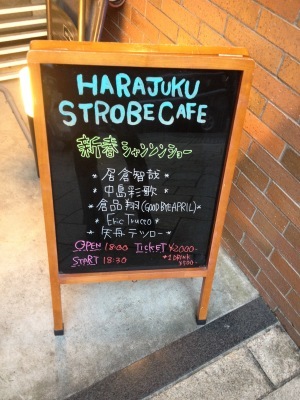 HARAJUKU
STROBE CAFE
新春シャンソンショー
*居倉智哉*
*中島彩歌*
*倉品翔(GOODBYE APRIL)*
*Eric Trucco*
*矢舟テツロー*
OPEN 18:00 TICKET ¥3000-
START 18:30 +1DRINK
¥500